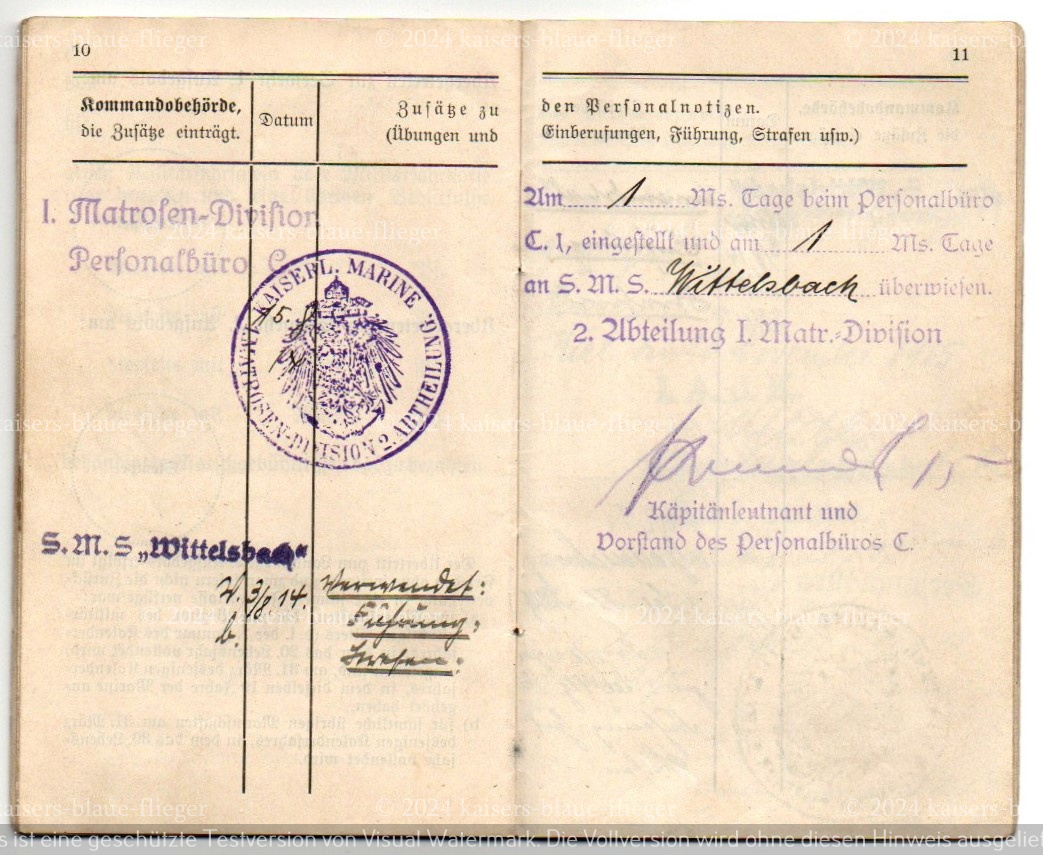 10
Kommandobehörde,
die Zusätze einträgt.
Datum
Zusätze zu
(Übungen und
I. Matrosen-Division
Personalbüro C
KAISERL. MARINE
MATROSEN-DIVISION 2. ABTHEILUNG
S.M.S „Wittelsbach“
v. 3/8 14. Verwendet:
b. Führung:
Strafen:
11
den Personalnotizen.
Einberufungen, Führung, Strafen usw.)
Am 1 Ms. Tage beim Personalbüro
C. I, eingestellt und am 1 Ms. Tage
an S. M. S. Wittelsbach überwiesen.
2. Abteilung I. Matr.-Division
Käpitänleutnant und
Vorstand des Personalbüros C.
© 2024 kaisers-blaue-flieger
s ist eine geschützte Testversion von Visual Watermark. Die Vollversion wird ohne diesen Hinweis ausgelief